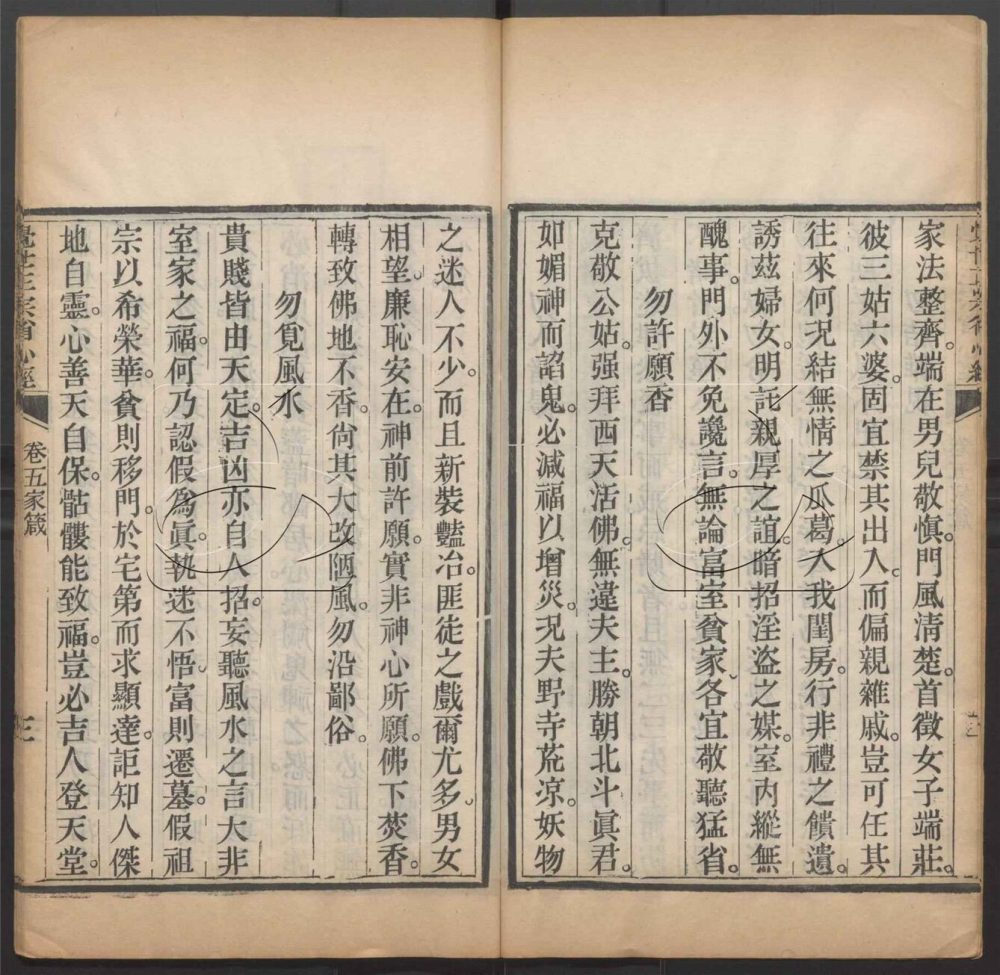 家法整齊。端在男兒敬愼。門風清楚。首徵女子端莊。
彼三姑六婆。固宜禁其出入。而偏親雜戚。豈可任其
往來。何況結無情之瓜葛。入我閨房。行非禮之饋遺。
誘茲婦女。明託親厚之誼。暗招淫盜之媒。室內縱無
醜事。門外不免讒言。無論富室貧家。各宜敬聽猛省。
勿許願香
克敬公姑。强拜西天活佛。無違夫主。勝朝北斗眞君。
如媚神而諂鬼。必減福以增災。況夫野寺荒凉。妖物
之迷人不少。而且新裝豔冶。匪徒之戲爾尤多。男女
相望。廉恥安在。神前許願。實非神心所願。佛下焚香。
轉致佛地不香。尙其大改陋風。勿沿鄙俗。
勿覓風水
貴賤皆由天定。吉凶亦自人招。妄聽風水之言。大非
室家之福。何乃認假為眞。執迷不悟。富則遷墓。假祖
宗以希榮華。貧則移門。於宅第而求顯達。詎知人傑
地自靈。心善天自保。骷髏能致福。豈必吉人登天堂。
覺世正宗省心經
卷五家箴
三